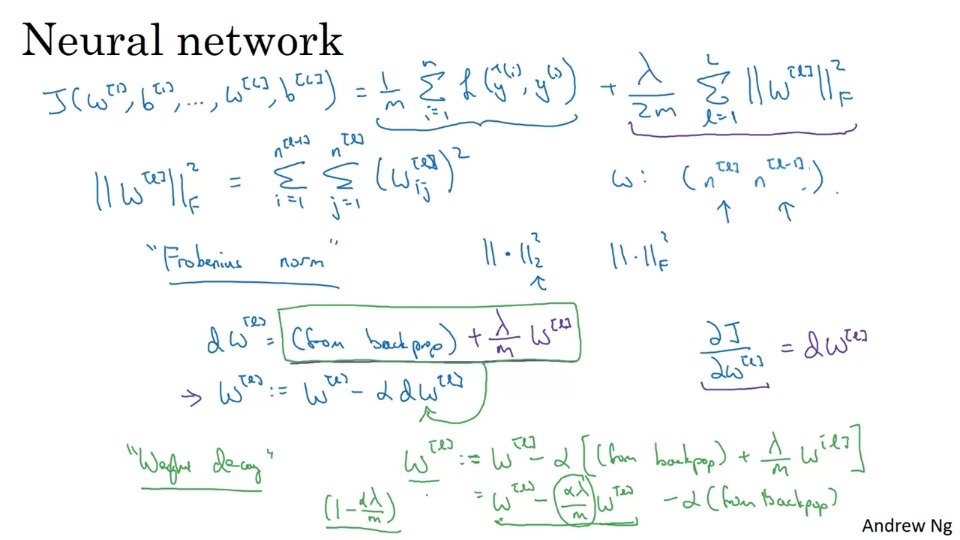 Neural network
J(w^[1], b^[1], ..., w^[L], b^[L]) = 1/m ∑_{i=1}^{n} L(ŷ^(i), y^(i)) + λ/2m ∑_{l=1}^{L} ||w^[l]||_F^2
||w^[l]||_F^2 = ∑_{i=1}^{n^[l-1]} ∑_{j=1}^{n^[l]} (w_ij^[l])^2    w: (n^[l] n^[l-1]).
"Frobenius norm"    ||·||_2^2    ||·||_F^2
dw^[l] = (from backprop) + λ/m w^[l]    ∂J/∂w^[l] = dw^[l]
→ w^[l] := w^[l] - α dw^[l]
"Weight decay"    w^[l] := w^[l] - α [(from backprop) + λ/m w^[l]]
(1 - αλ/m)    = w^[l] - αλ/m w^[l] - α (from backprop)
Andrew Ng